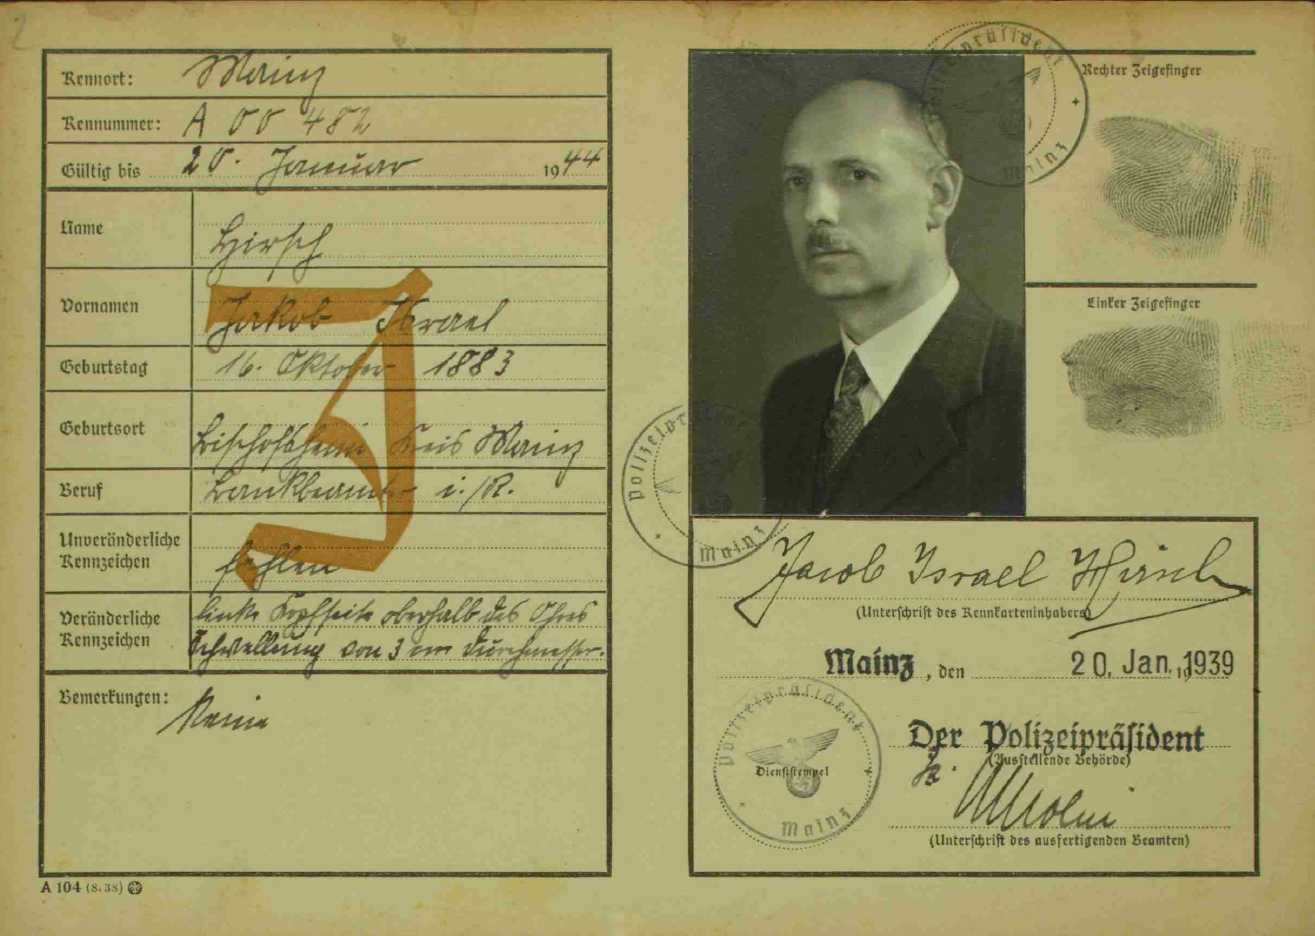 2
Kennort: Mainz
Kennummer: A 00 482
Gültig bis 20. Januar 1944
Name Hirsch
Vornamen Jakob Israel
Geburtstag 16. Oktober 1883
Geburtsort Bischofsheim Kreis Mainz
Beruf Bankbeamter i./R.
Unveränderliche Kennzeichen fehlen
Veränderliche Kennzeichen linke Kopfseite oberhalb des Ohres
Schwellung von 3 cm Durchmesser.
Bemerkungen: Keine
J
A 104 (8. 38)
Polizeipräsident
Mainz
Rechter Zeigefinger
Linker Zeigefinger
Polizeipräsident
Mainz
Jacob Israel Hirsch
(Unterschrift des Kennkarteninhabers)
Mainz, den 20. Jan. 1939
Polizeipräsident
Dienststempel
Mainz
Der Polizeipräsident
(Ausstellende Behörde)
(Unterschrift des ausfertigenden Beamten)